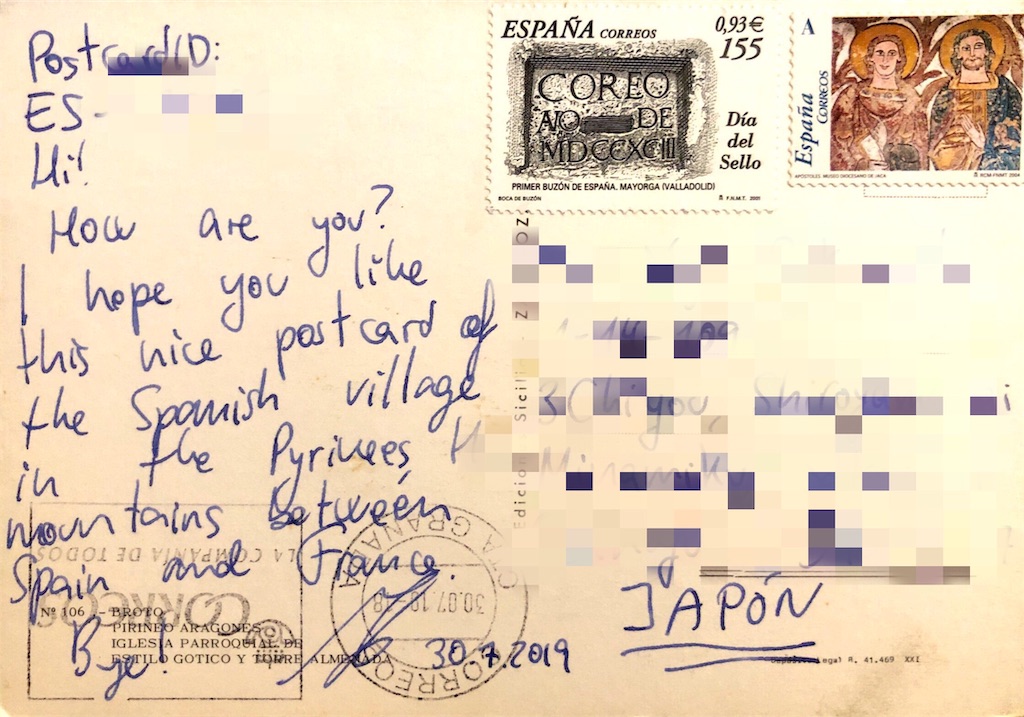 PostcardID:
ES-
Hi!
How are you?
I hope you like
this nice postcard of
the Spanish village
in the Pyrinees,
mountains between
Spain and France.
Bye!
30.7.2019
Nº 106 .- BROTO
PIRINEO ARAGONES
IGLESIA PARROQUIAL DE
ESTILO GOTICO Y TORRE ALMENADA
LA COMPAÑIA DE TODOS
CORREOS
GRANADA
30.07.19-18
CORREO
ESPAÑA CORREOS
0,93€
155
COREO
AÑO DE
MDCCXCIII
Día
del
Sello
PRIMER BUZÓN DE ESPAÑA. MAYORGA (VALLADOLID)
BOCA DE BUZÓN
F.N.M.T. 2005
A
España
CORREOS
APOSTOLES. MUSEO DIOCESANO DE JACA
RCM-FNMT 2004
JAPÓN
Legal R. 41.469 XXI